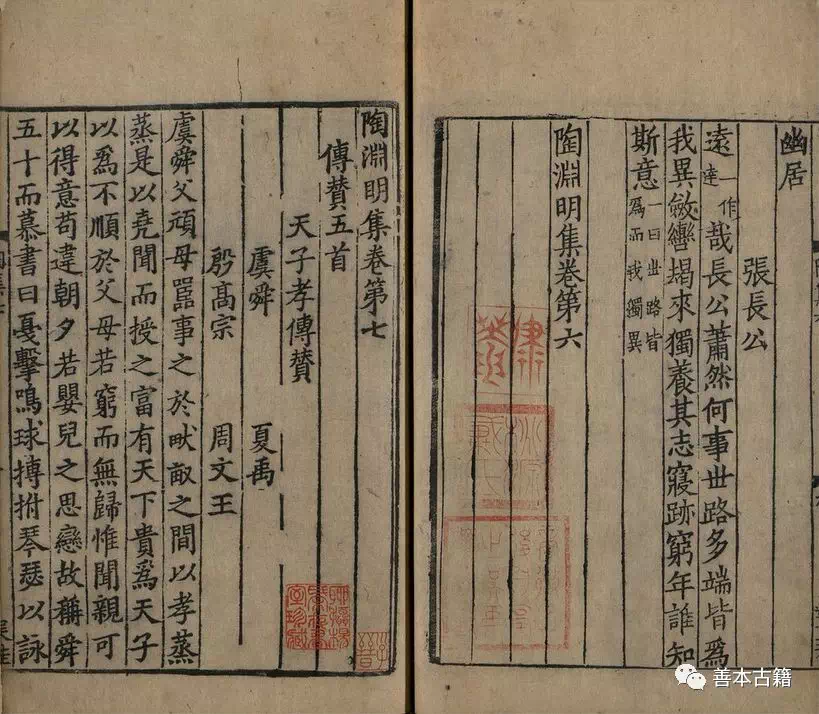 幽居
張長公
遠一作達哉長公蕭然何事世路多端皆爲
我異斂轡朅來獨養其志寢跡窮年誰知
斯意一曰世路皆爲而我獨異
陶淵明集卷第六
陶淵明集卷第七
傳贊五首
天子孝傳贊
虞舜 夏禹
殷高宗 周文王
虞舜父頑母嚚事之於畎畝之間以孝蒸
蒸是以堯聞而授之富有天下貴爲天子
以爲不順於父母若窮而無歸惟聞親可
以得意苟違朝夕若嬰兒之思戀故稱舜
五十而慕書曰戞擊鳴球搏拊琴瑟以詠
善本古籍